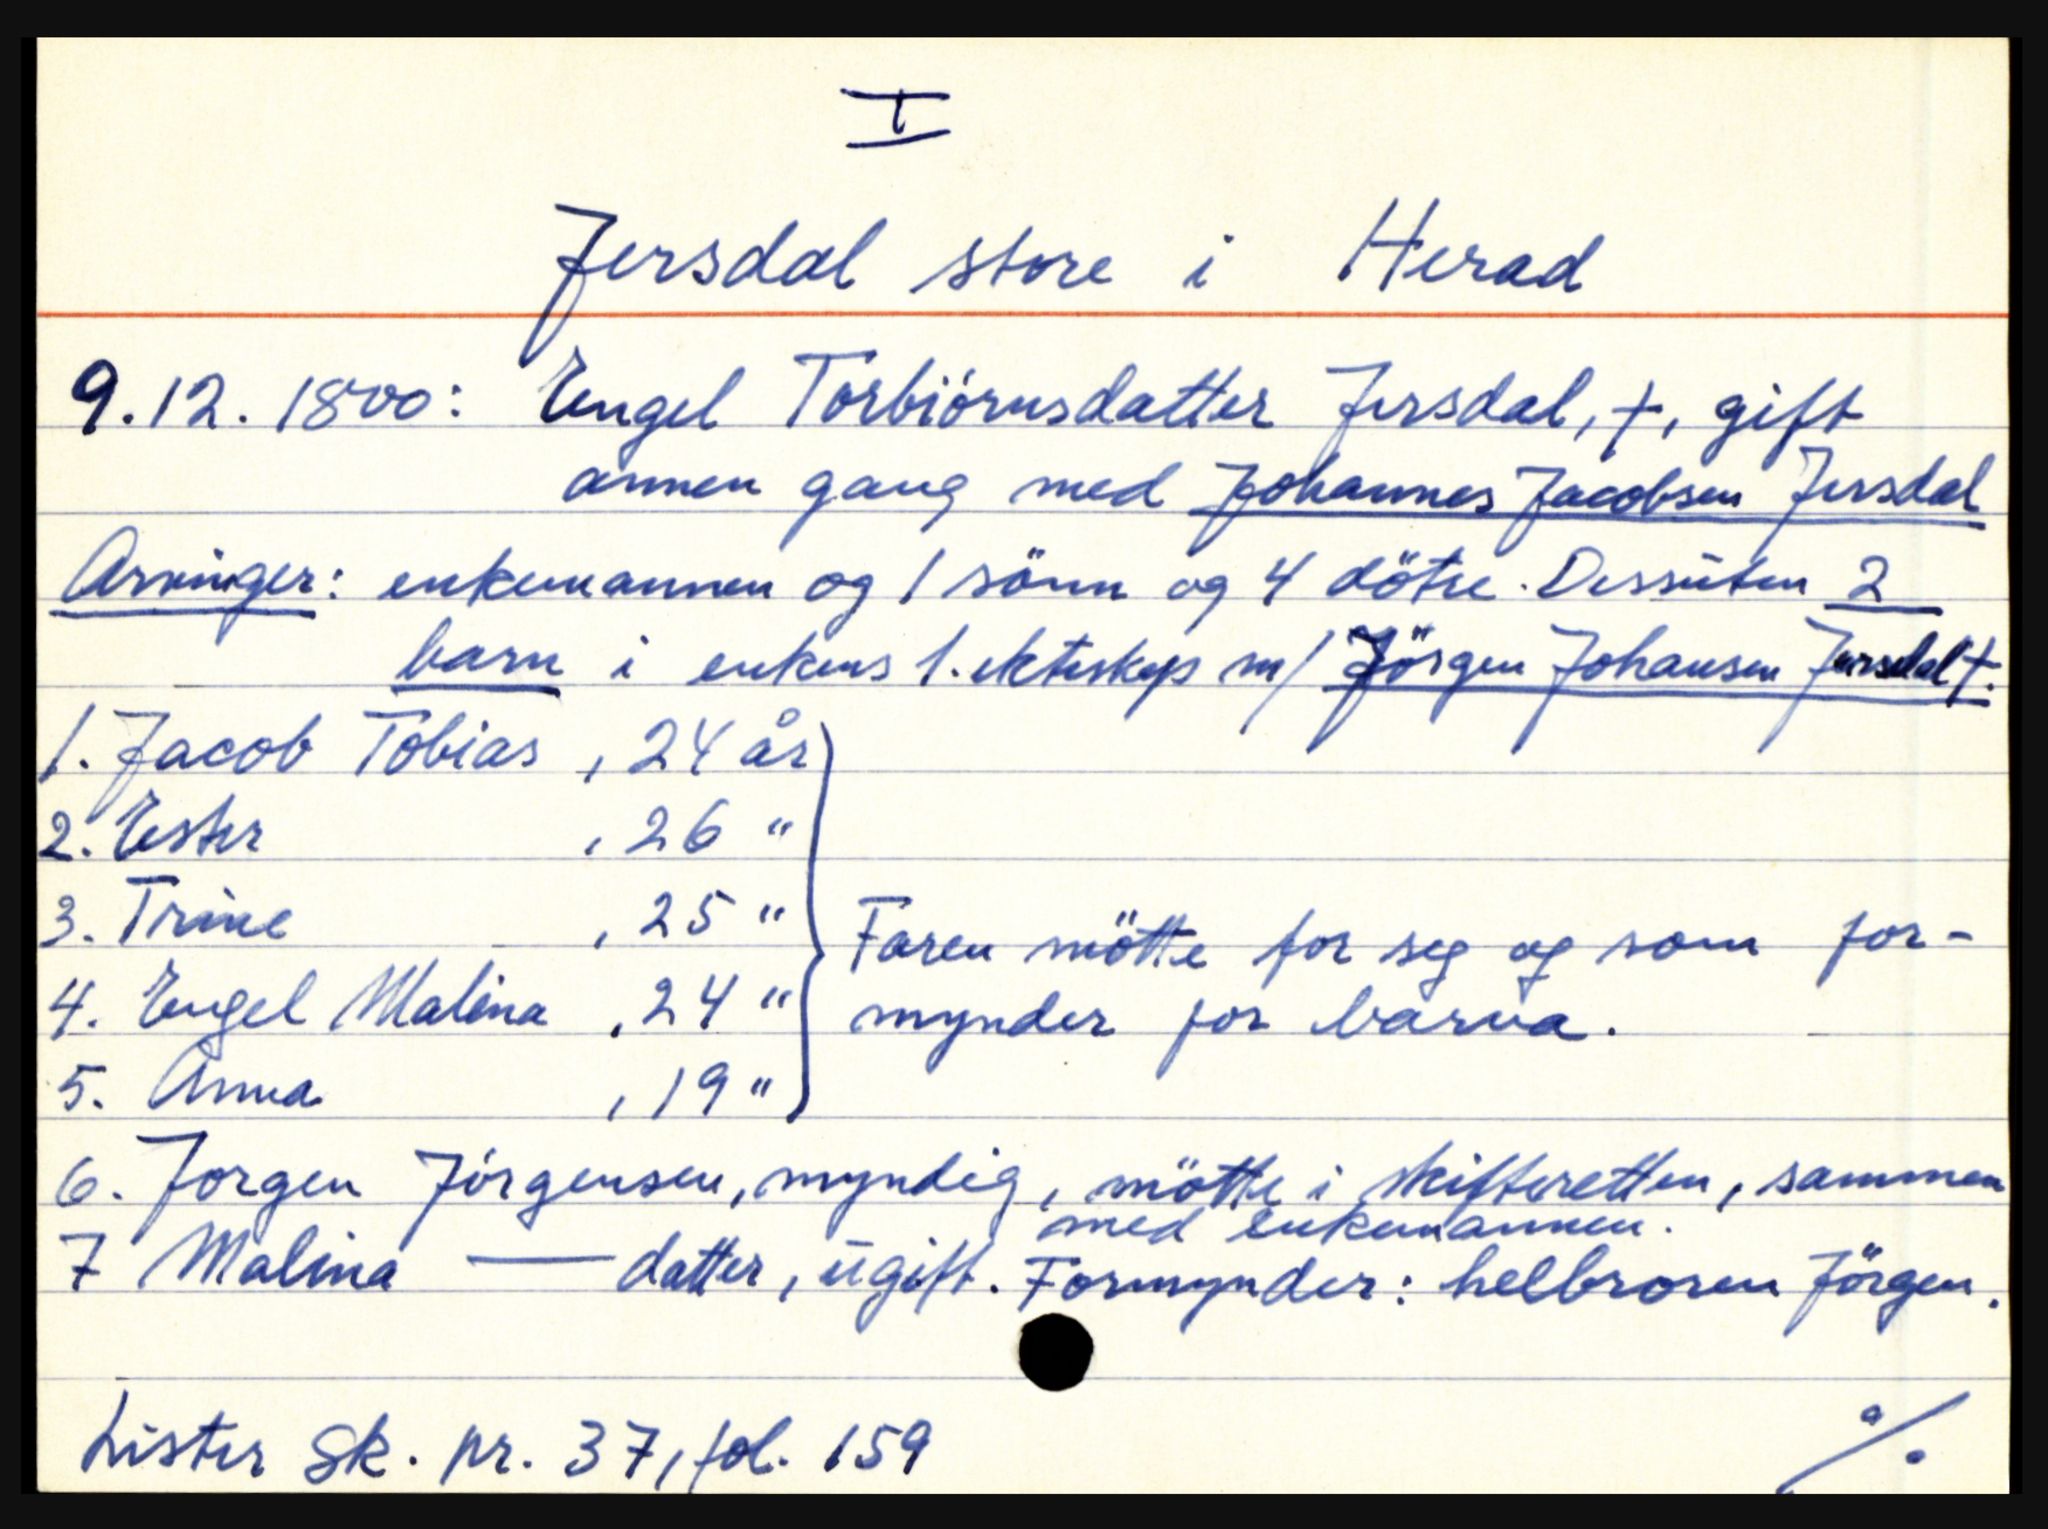 I
Jersdal store i Herad
9.12.1800: Engel Torbiörnsdatter Jersdal, †, gift
annen gang med Johannes Jacobsen Jersdal
Arvinger: enkemannen og 1 sönn og 4 dötre. Dessuten 2
barn i enkens 1. ekteskap m/ Jörgen Johansen Jersdal †.
1. Jacob Tobias , 24 år
2. Ester , 26 "
3. Trine , 25 "
4. Engel Malina , 24 "
5. Anna , 19 "
Faren mötte for seg og som for-
mynder for barna.
6. Jorgen Jörgensen, myndig, mötte i skifteretten, sammen
med enkemannen.
7 Malina — datter, ugift. Formynder: helbroren Jörgen.
Lister sk. pr. 37, fol. 159
%